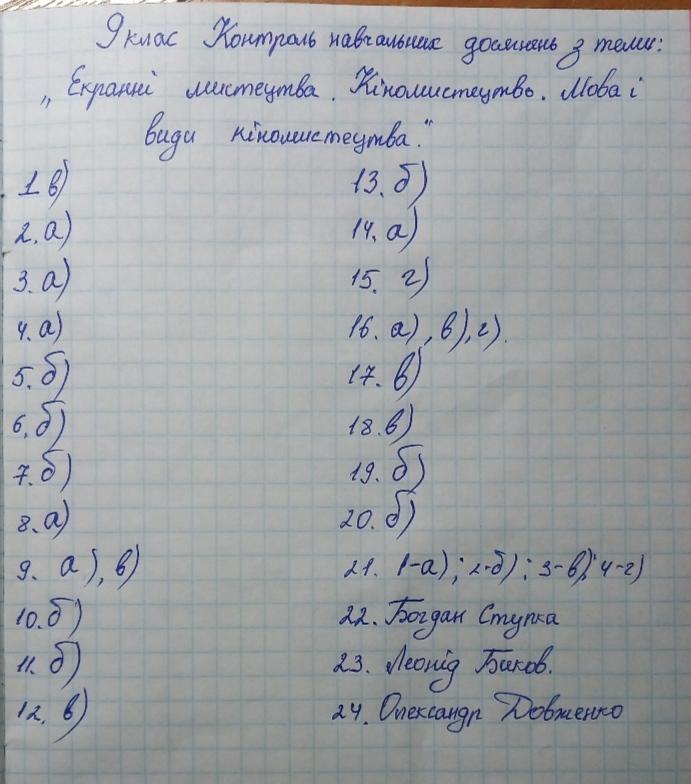 9 клас Контроль навчальних досягнень з теми:
„Екранні мистецтва. Кіномистецтво. Мова і
види кіномистецтва."
1. в)
2. а)
3. а)
4. а)
5. б)
6. б)
7. б)
8. а)
9. а), в)
10. б)
11. б)
12. в)
13. б)
14. а)
15. г)
16. а), в), г).
17. в)
18. в)
19. б)
20. б)
21. 1-а); 2-б); 3-в); 4-г)
22. Богдан Ступка
23. Леонід Биков.
24. Олександр Довженко